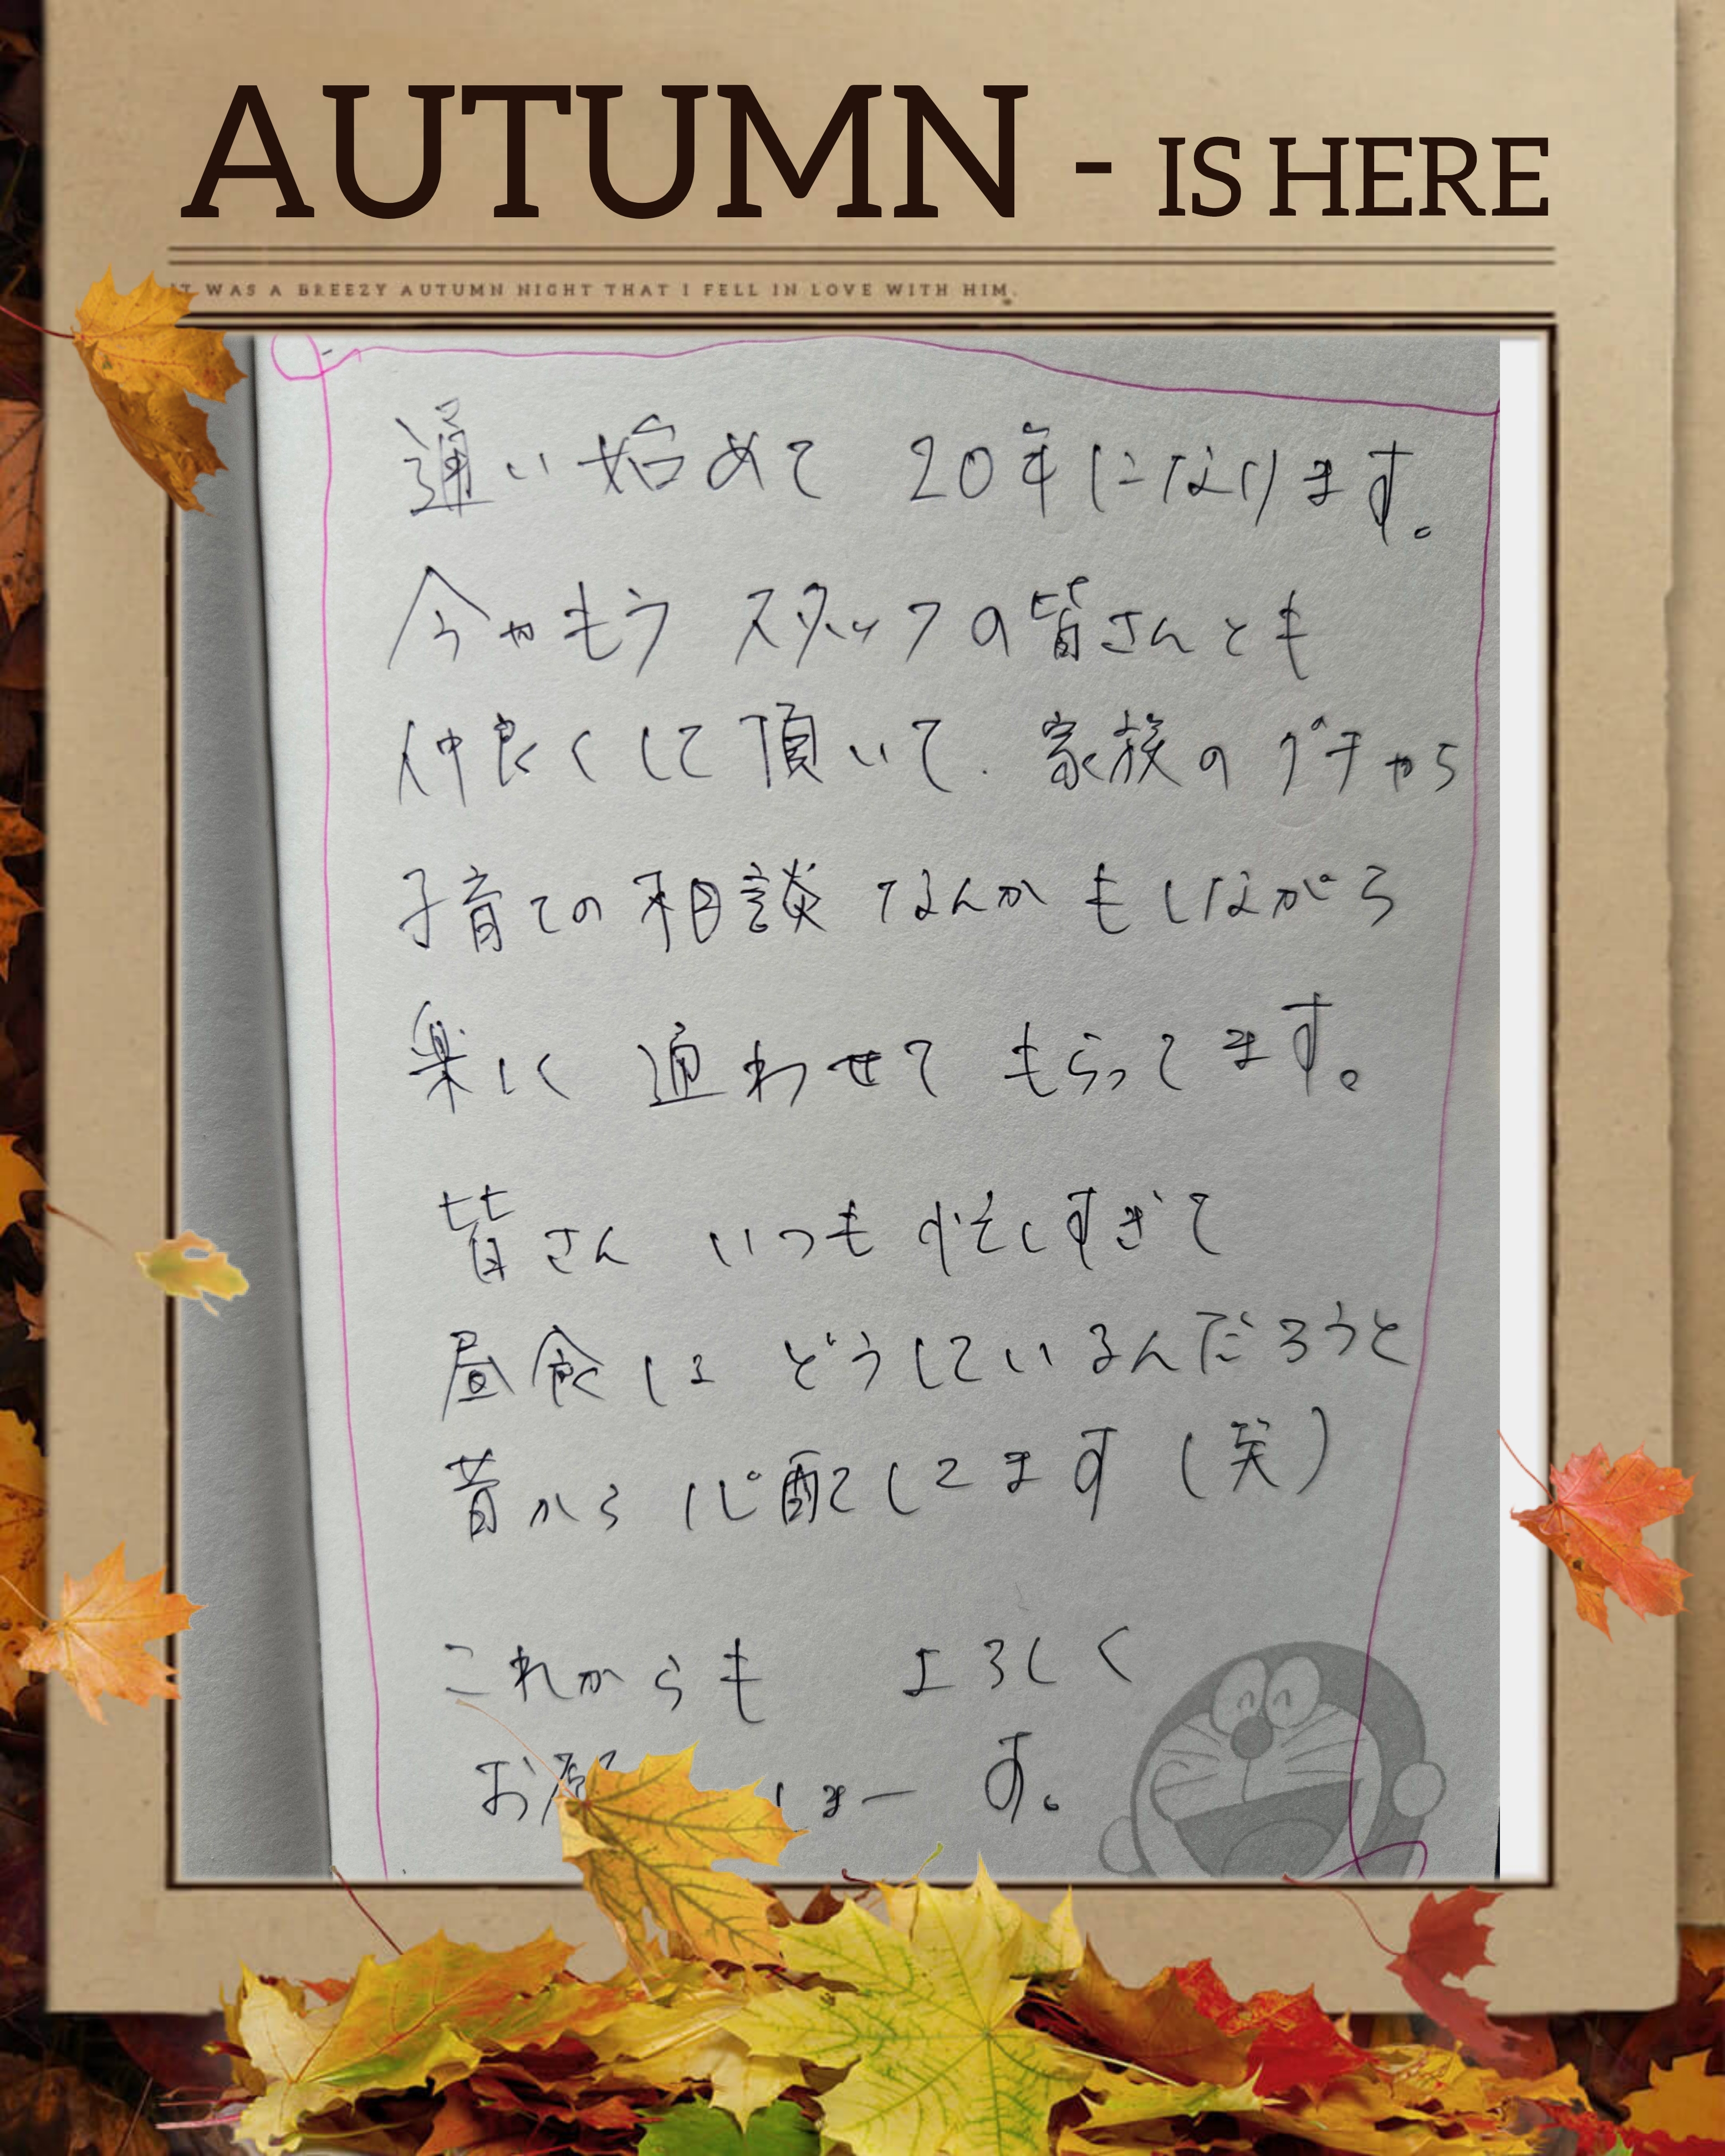 AUTUMN - IS HERE
IT WAS A BREEZY AUTUMN NIGHT THAT I FELL IN LOVE WITH HIM.
通い始めて 20年になります。
今やもう スタッフの皆さんとも
仲良くして頂いて、家族のグチやら
子育ての相談 なんかもしながら
楽しく 通わせて もらってます。
皆さん いつも 忙しすぎて
昼食は どうしているんだろうと
昔から 心配してます(笑)
これからも よろしく
お願 しまーす。